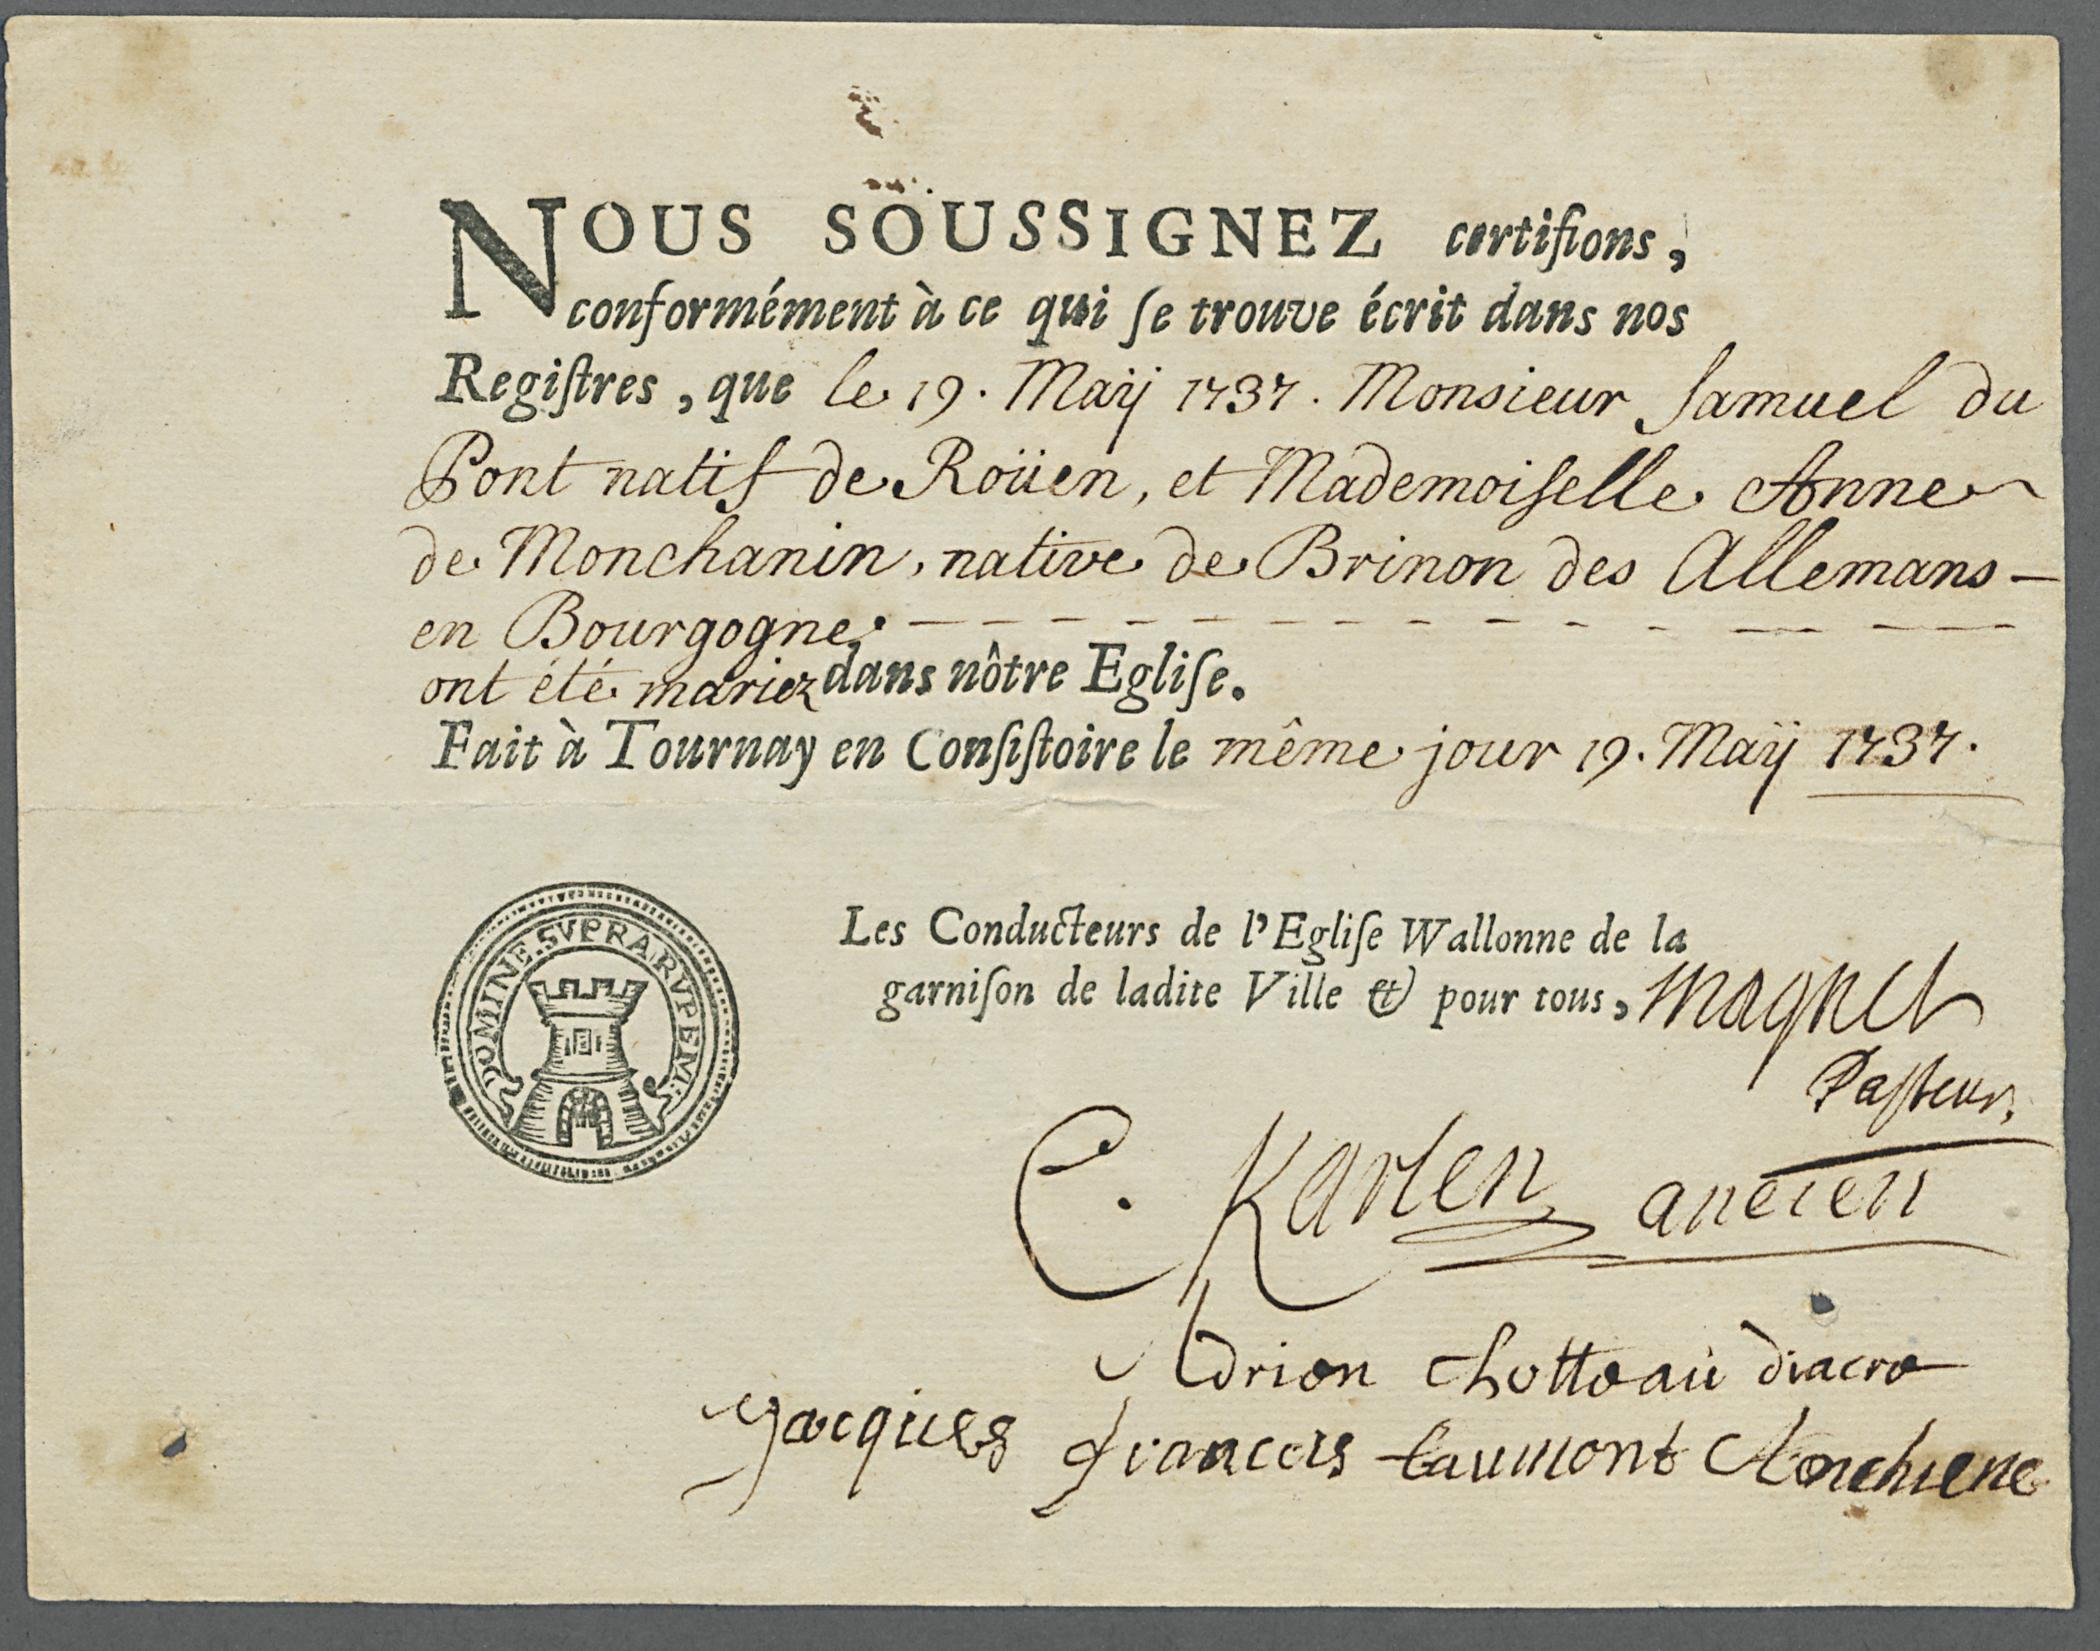 NOUS SOUSSIGNEZ certifions,
conformément à ce qui ſe trouve écrit dans nos
Regiſtres, que le 19. Maÿ 1737. Monsieur Samuel du
Pont natif de Roüen, et Mademoiſelle Anne
de Monchanin, native de Brinon des Allemans -
en Bourgogne. - - - - - - - - - - - - - - -
ont été mariez dans nôtre Egliſe.
Fait à Tournay en Conſiſtoire le même jour 19. Maÿ 1737.
DOMINE. SVPRA RVPEM.
Les Conducteurs de l'Egliſe Wallonne de la
garniſon de ladite Ville & pour tous, Magnet
Paſteur.
C. Karlen ancien
Adrion Chottoaŭ diacro
Jacques francois Caumont